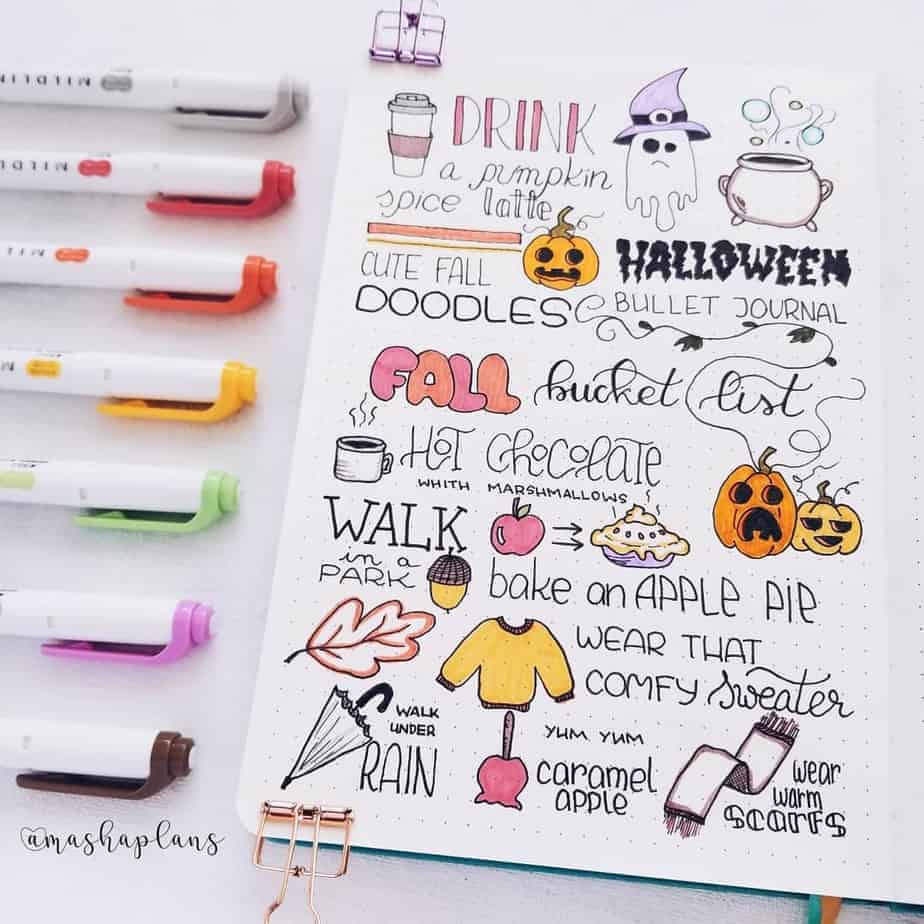 MILDLIN
DRINK
a pumpkin
spice latte
MILDL
HALLOWEEN
CUTE FALL
DOODLES
BULLET JOURNAL
MIL
FALL bucket list
M
HOT chocolate
WHITH MARSHMALLOWS
WALK
in a
PARK
bake an APPLE PIE
WEAR THAT
COMFY sweater
WALK
UNDER
RAIN
YUM YUM
caramel
apple
wear
warm
scarfs
@mashaplans